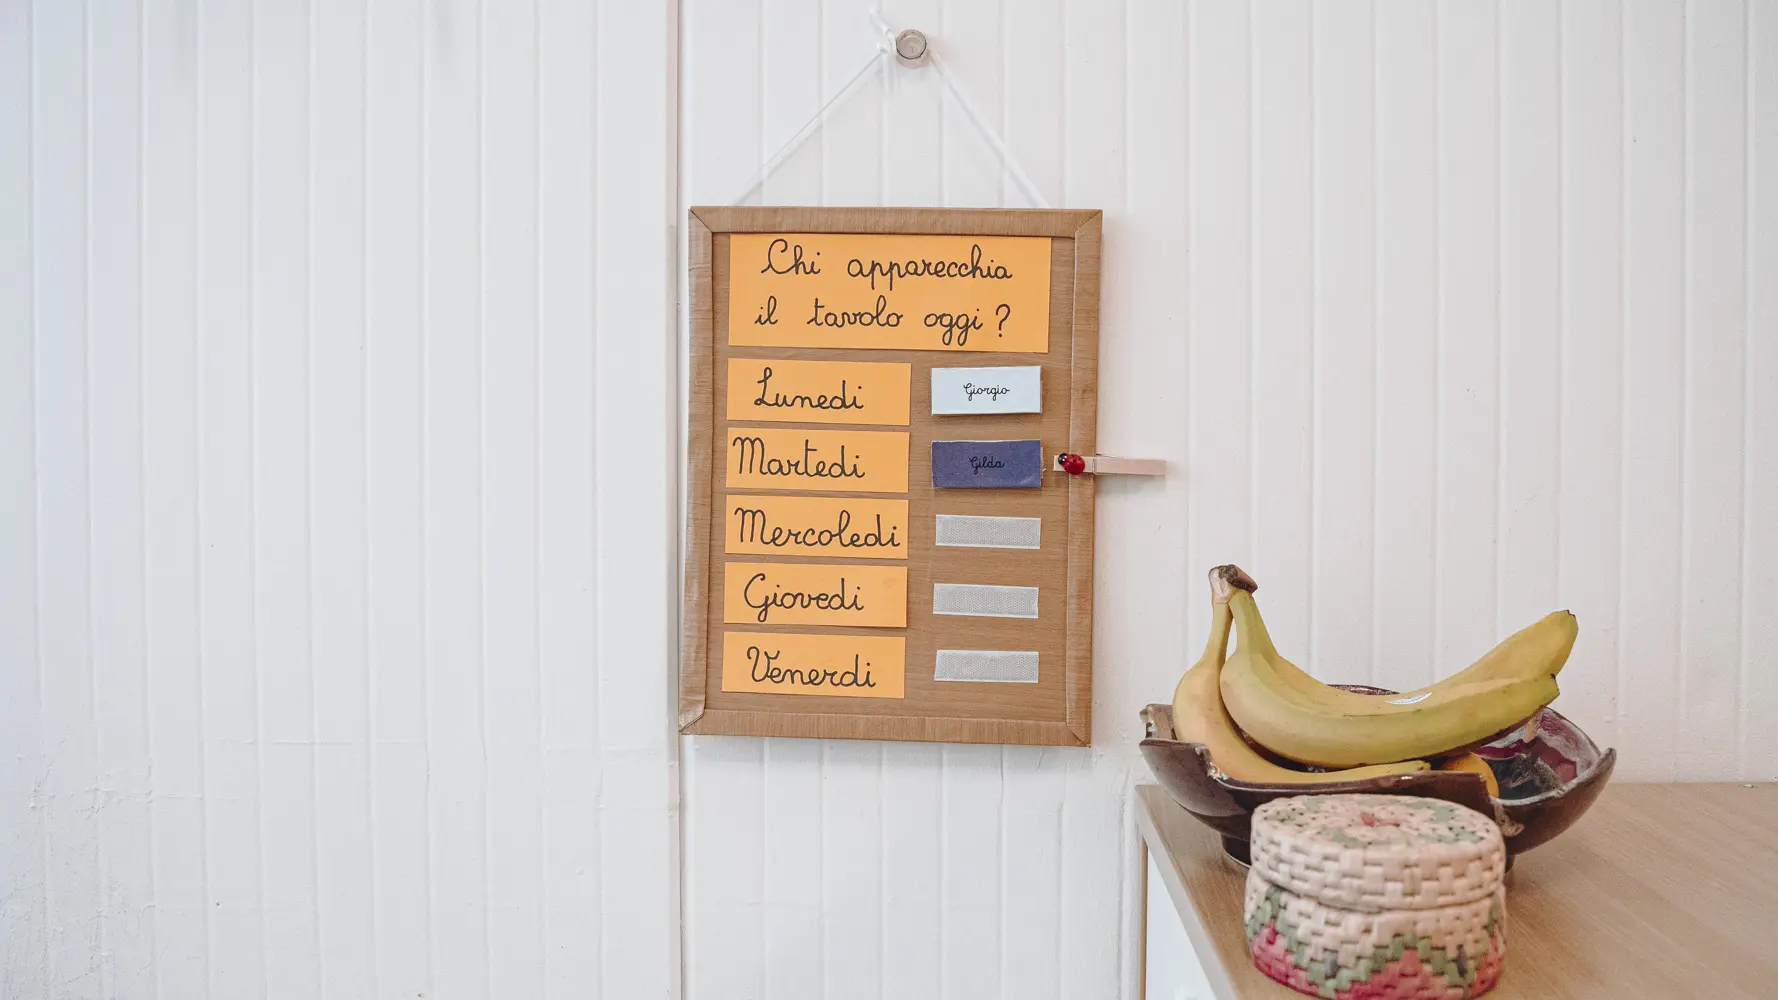 Chi apparecchia
il tavolo oggi?
Lunedi
Giorgio
Martedi
Gilda
Mercoledi
Giovedi
Venerdi